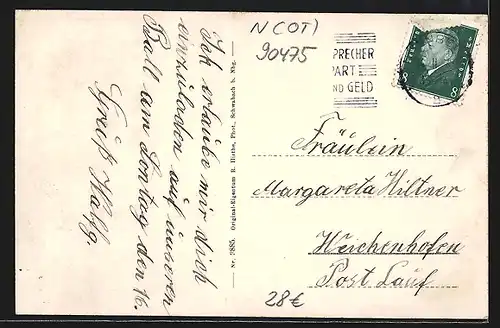 Ich erlaube mir dich
einzuladen auf unseren
Ball am Sontag den 16.
Gruß Wolfg.
Nr. 3885. Original-Eigentum R. Hirthe, Phot., Schwabach b. Nbg.
N (OT)
90475
SPRECHER
PART
ND GELD
8 8
Fräulein
Margareta Hiltner
Weichenhofen
Post Lauf
28€